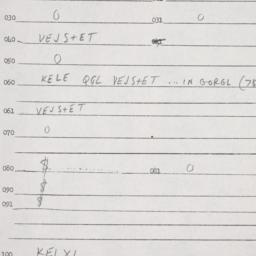 030 0 031 0
040 VEJSTET
050 0
060 KELE QGL VEJSTET ... IN GORGL (7
061 VEJSTET
070 0
080 $ ............ 081 0
090 $
091 $
100 KELX